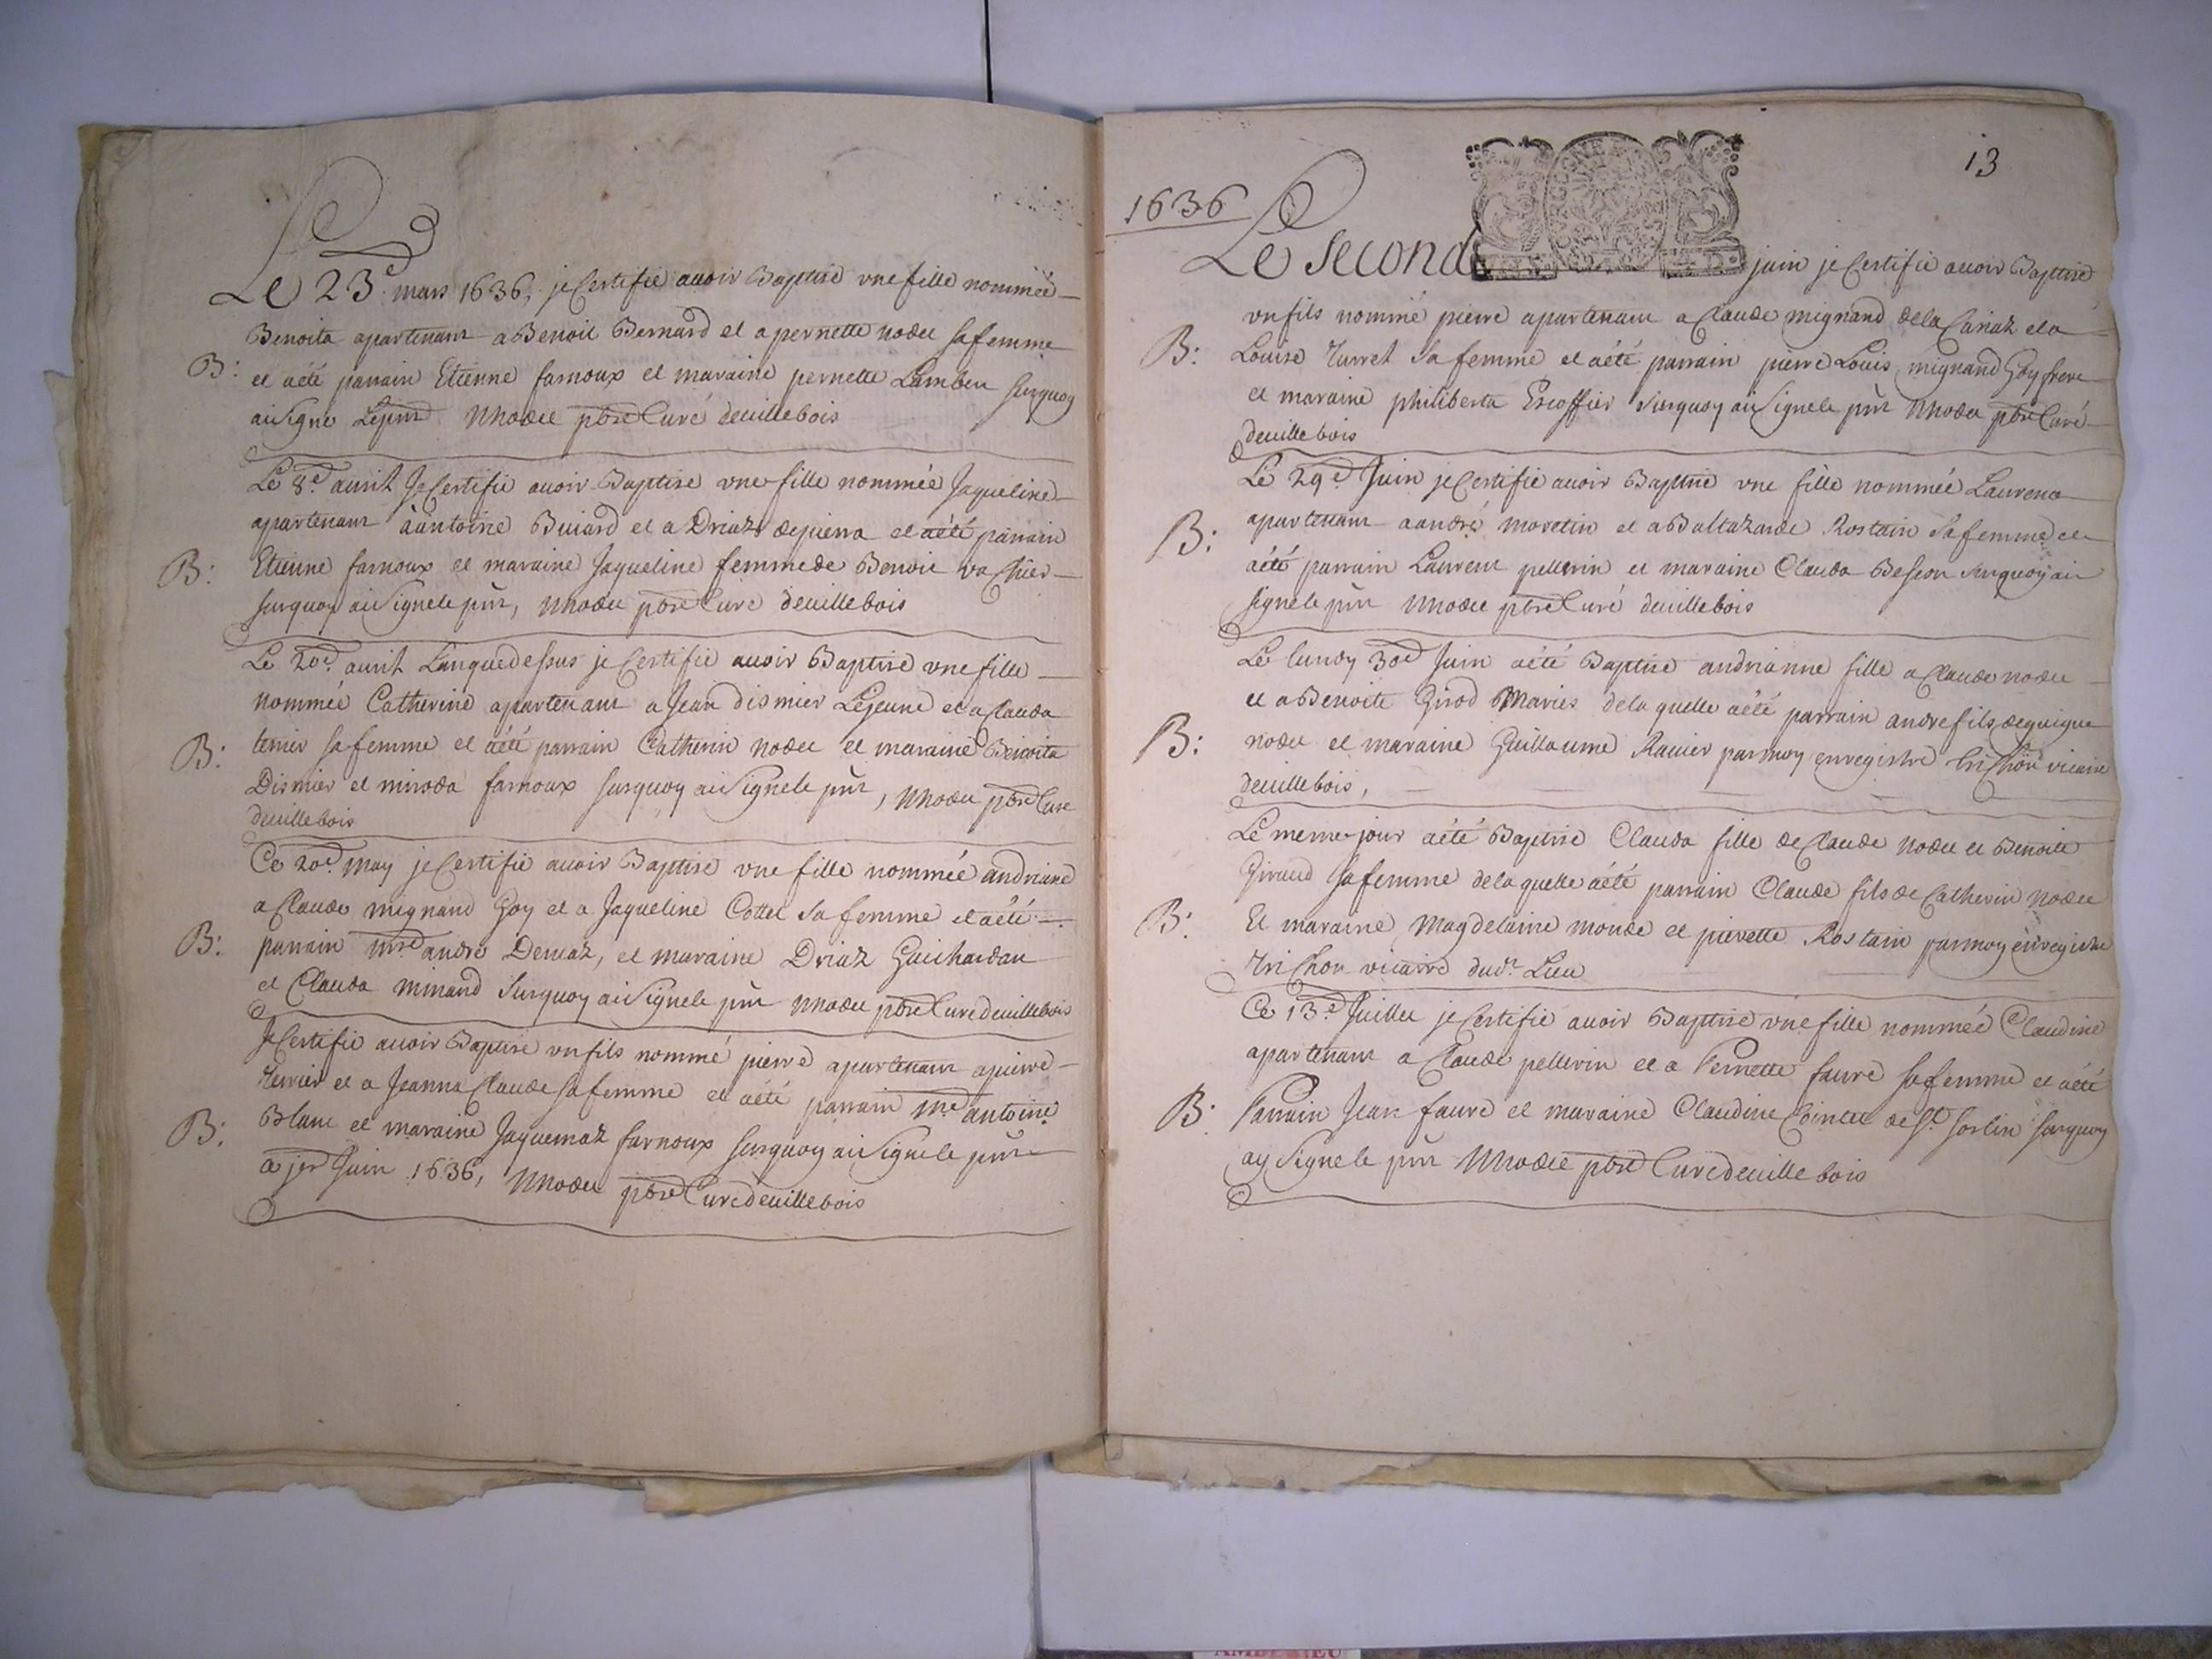 Le 23e mars 1636, je Certifie auoir Baptisé vne fille nommée
Benoita apartenant a Benoit Bernard et a pernette nodet sa femme
B: et aété parrain Etienne farnoux et maraine pernette Lambert surquoy
ai signé Le pnt Nnodet pbre Curé deuillebois
Le 8e auril Je Certifie auoir Baptisé vne fille nommée Jaqueline
apartenant à antoine Buiard et a Driaz depierra et aété parrain
B: Etienne farnoux et maraine Jaqueline femme de Benoit vachier
surquoy ai signé le pnt, Nnodet pbre Curé deuillebois
Le 20e auril L'anquedessus je Certifie auoir Baptisé vne fille
nommée Catherine apartenant a Jean dismier Lejeune et a Clauda
B: terrier sa femme et aété parrain Catherin nodet et maraine Benoita
Dismier et mioda farnoux surquoy ai signé le pnt, Nnodet pbre Curé
deuillebois
Ce 20e may je Certifie auoir Baptisé vne fille nommée andriane
a Claude mignand Goy et a Jaqueline Cottet sa femme et aété
B: parrain mre andré Demaz, et maraine Driaz Guichardan
et Clauda minand surquoy ai signé le pnt Nnodet pbre Curé deuillebois
Je Certifie auoir Baptisé vn fils nommé pierre apartenant apierre
terrier et a Jeanna Claude sa femme et aété parrain mre antoine
B: Blanc et maraine Jaquemaz farnoux surquoy ai signé le pnt
a jer Juin 1636, Nnodet pbre Curé deuillebois
13
1636
Le second juin je Certifie auoir Baptisé
vn fils nommé pierre apartenant a Claude mignand dela Cariaz et a
B: Louise turret sa femme et aété parrain pierre Louis mignand Goy frere
et maraine philiberta Escoffier surquoy ai signé le pnt Nnodet pbre Curé
deuillebois
Le 29e Juin je Certifie auoir Baptisé vne fille nommée Laurena
B: apartenant a andré moretin et a Baltazarde Rostain sa femme et
aété parrain Laurent pellerin et maraine Clauda Besson surquoy ai
signé le pnt Nnodet pbre Curé deuillebois
Le lundy 30e Juin aété Baptisé andrianne fille a Claude nodet
et a Benoite Girod Mariés dela quelle aété parrain andre fils de guigue
B: nodet et maraine Guillaume Rauier parmoy enregistré trichon vicaire
deuillebois,
Le meme jour aété Baptisé Clauda fille de Claude nodet et Benoite
Giraud sa femme dela quelle aété parrain Claude fils de Catherin nodet
B: Et maraine Magdelaine monde et pierette Rostain parmoy enregistré
trichon vicairre dudt Lieu
Ce 13e Juillet je Certifie auoir Baptisé vne fille nommée Claudine
apartenant a Claude pellerin et a Pernette faure sa femme et aété
B: Parrain Jean faure et maraine Claudine Cointet de St Sorlin surquoy
ay signé le pnt Nnodet pbre Curé deuillebois